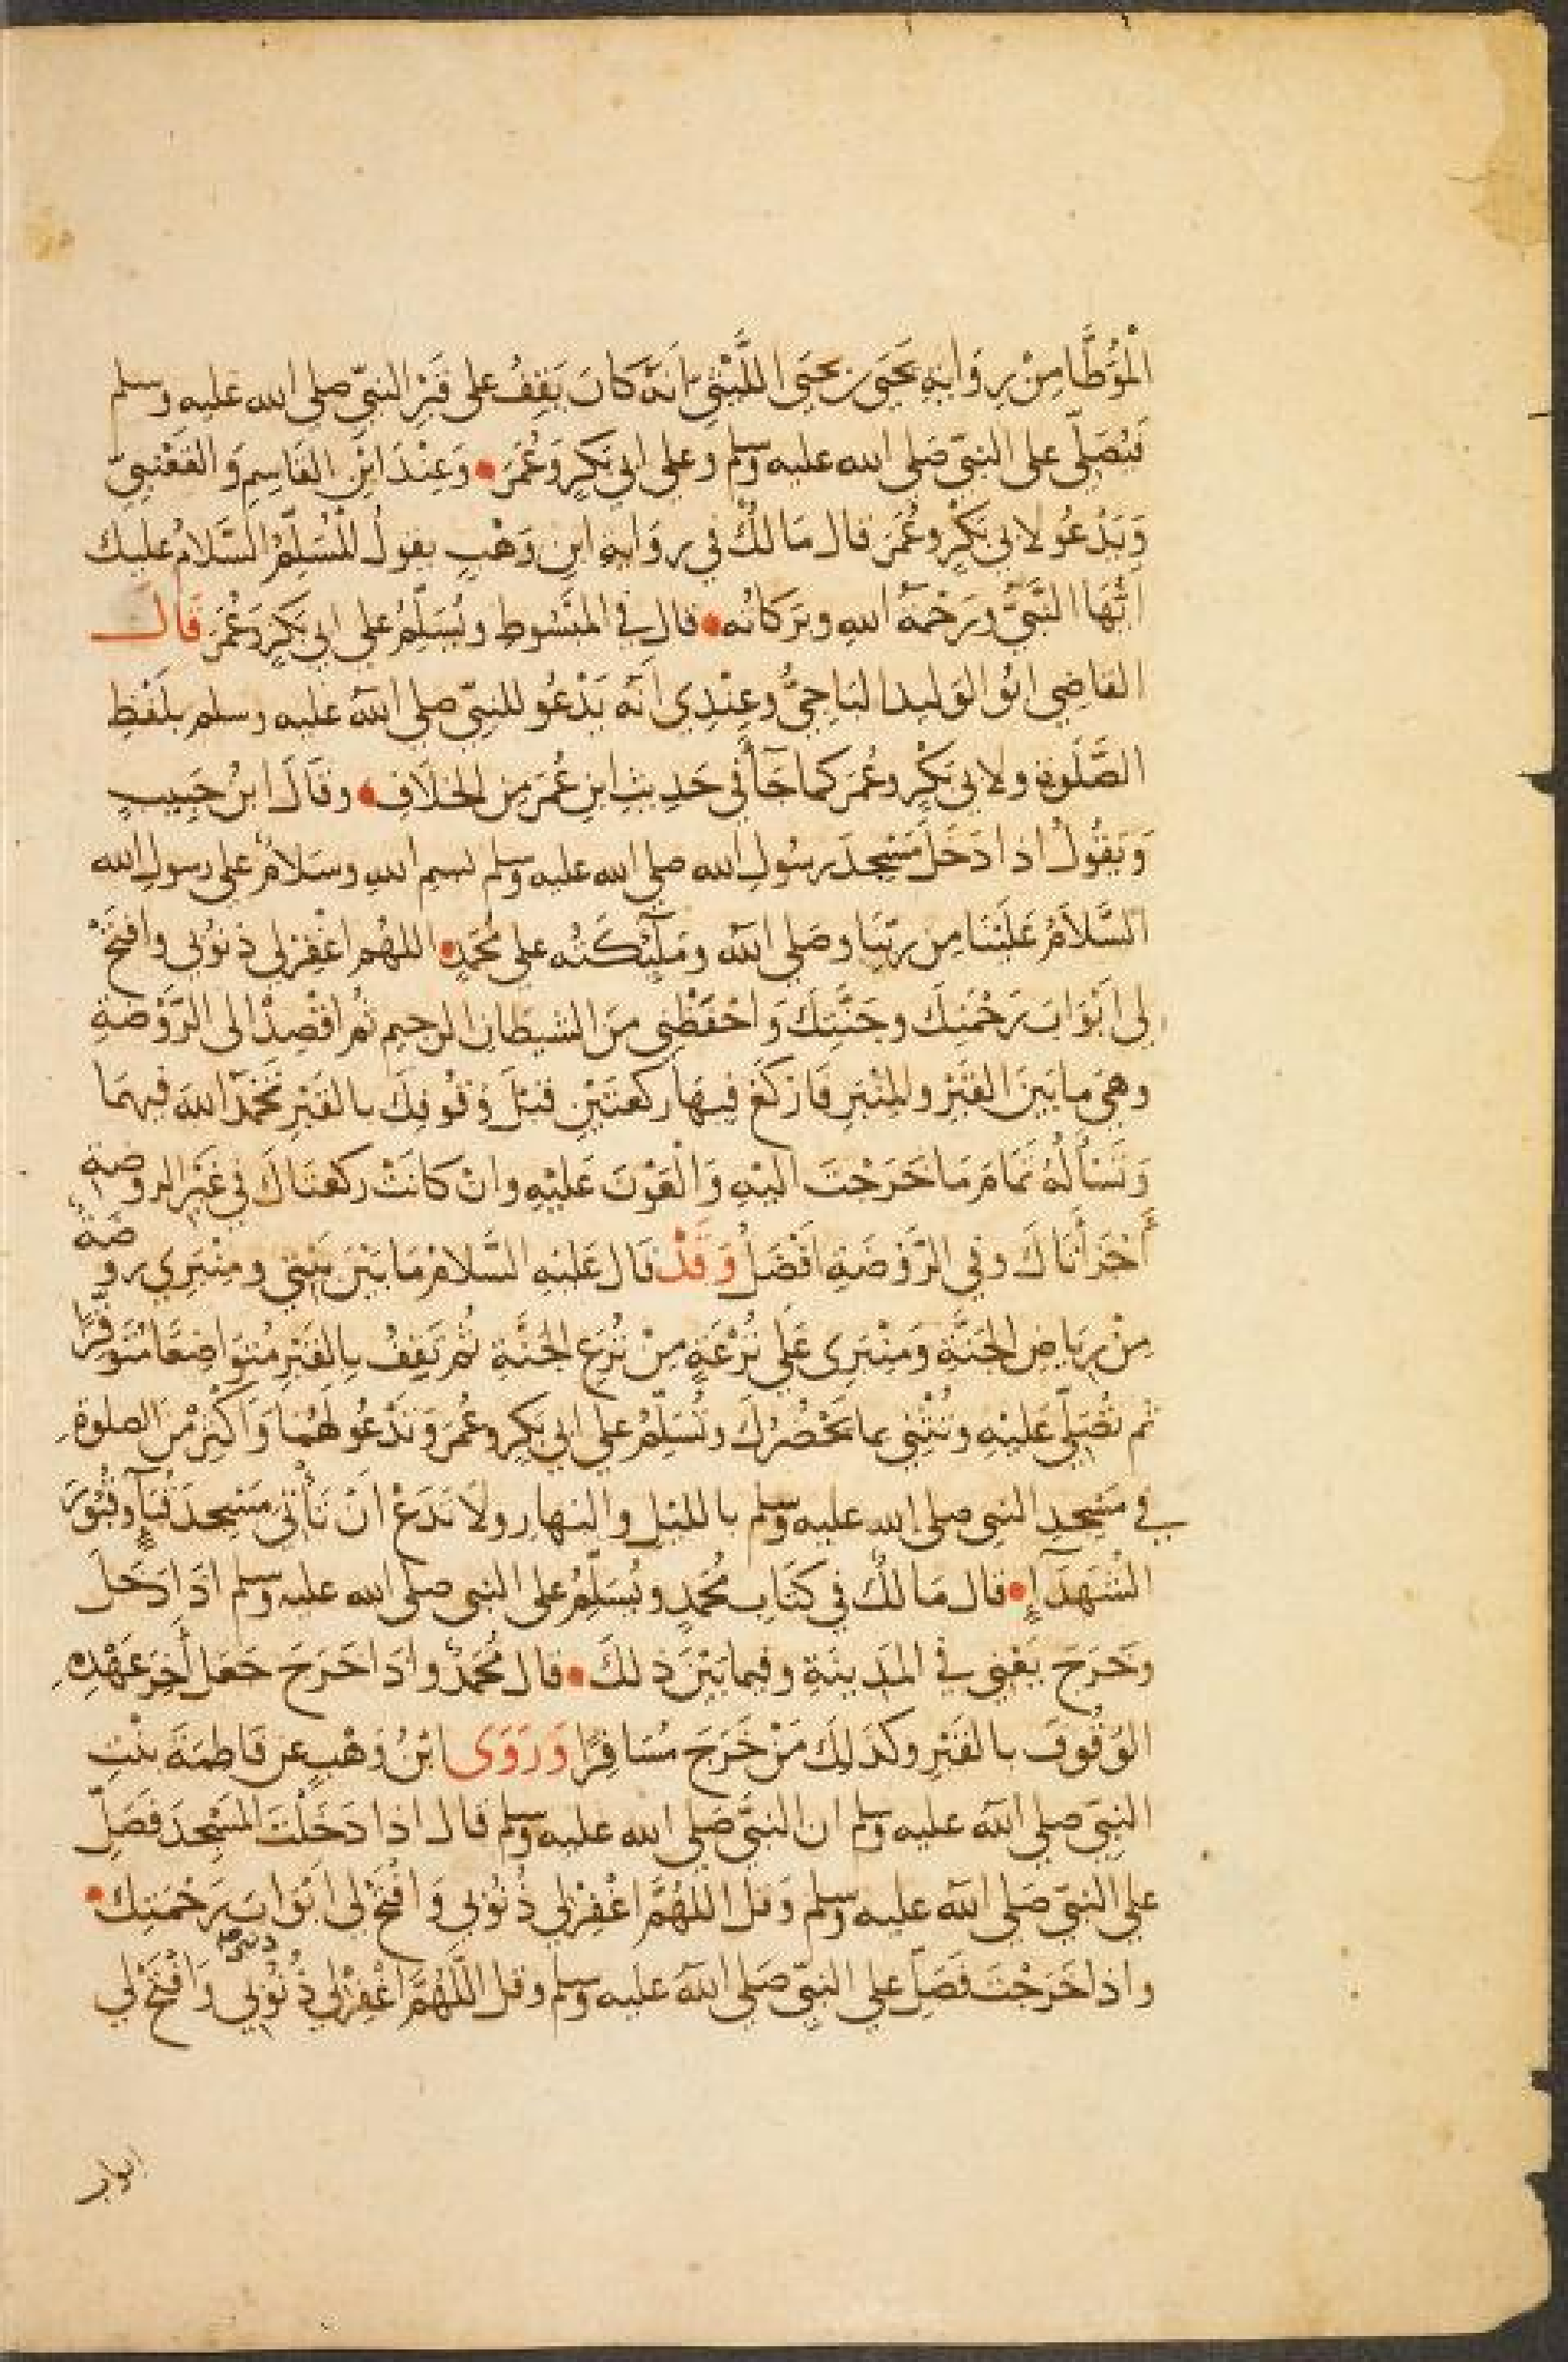 الْمُوَطَّا مِنْ رِوَايَةِ يَحْيَى بن يَحْيَى اللَّيْثِي انَّهُ كَانَ يَقِفُ على قَبْرِ النبيّ صلى الله عليه وسلم
فَيُصَلِّي على النبيّ صَلى الله عليه وسلم وعلى ابي بَكرٍ وعُمَرَ • وَعِنْدَ ابْنِ القَاسِمِ وَالقَعْنَبِيّ
وَيَدْعُو لابي بَكْرٍ وعُمَرَ قال مَالكٌ في رِوَايةِ ابنِ وَهْبٍ يقولُ المُسَلِّمُ السَّلامُ عليك
ايُّهَا النَّبيُّ ورَحْمَةُ اللهِ وبَرَكاتُه • قال في المَبْسُوطِ ويُسَلِّمُ على ابي بَكرٍ وَعُمَرَ قَالَ
القاضِي ابُو الوَليد البَاجِيُّ وعِنْدِي انَّه يَدْعُو للنبيّ صلى الله عليه وسلم بلَفظِ
الصَّلَوةِ ولابي بَكْرٍ وعُمَرَ كما جَآَ في حَدِيثِ ابنِ عُمَرَ مِن الخلَافِ • وقَالَ ابنُ حَبِيبٍ
وَيَقُولُ اذا دَخَلَ مَسْجِدَ رسُولِ الله صلى الله عليه وسلم بسمِ اللهِ وسَلامٌ على رسولِ الله
السَّلاَمُ عَلَيْنَا مِن رَبِّنَا وصَلى اللهُ ومَلَئِكَتُه على مُحَمّدٍ • اللهُم اغْفِرْ لي ذنُوبي وافتَحْ
لي ابْوَابَ رَحْمَتِكَ وجَنَّتِكَ وَاحْفَظْنِي مِنَ الشيطانِ الرجيمِ ثُم اقْصِدْ الى الرَّوْضَةِ
وهىَ ما بَينَ القَبْرِ والمِنْبَرِ فَارْكَعْ فِيهَا ركعتَيْنِ قبْلَ وُقُوفِكَ بالقَبْرِ تَحْمَدُ اللهَ فيهِمَا
وَتَسْأَلُهُ تَمَامَ مَا خَرَجْتَ اليْهِ وَالْعَوْنَ عَليْهِ وانْ كانَتْ ركعتَاكَ في غَيْرِ الروضةِ
أَجْزَأَتَاكَ وفي الرَّوْضَةِ افْضَلُ وَقَدْ قال عَليْهِ السَّلامُ مَا بَيْنَ بَيْتِي ومِنْبَرِي روضَةٌ
مِنْ رِيَاضِ الجَنَّةِ وَمِنْبَرِى عَلى تُرْعَةٍ مِنْ تُرَعِ الجَنَّةِ ثُم تَقِفُ بِالقَبْرِ مُتَوَاضِعًا مُتَوقِّرًا
ثم تُصَلّي عَليْهِ وتُثْنِي بما يَحْضُرُكَ وتُسَلِّمُ على ابي بَكرٍ وعُمَرَ وَتدْعُو لَهُما وَاَكْثِرْ مِن الصلوةِ
في مَسْجِدِ النبي صلى الله عليه وسلم بالليْلِ والنهارِ ولاَ تَدَعْ انْ تَأْتيَ مَسْجِدَ قُبَآءٍ وقُبُورَ
الشُهَدَآءِ • قال مَالكٌ في كتَابِ مُحَمدٍ ويُسَلِّمُ على النبي صلى الله عليه وسلم اذَا دَخَلَ
وخَرَجَ يَعْني في المَدِينَةِ وفيما بَيْنَ ذلكَ • قال مُحَمّدٌ واذَا خَرَجَ جَعَلَ أخِرَ عَهْدِهِ
الوُقُوفَ بالقَبْرِ وكذَلِكَ مَنْ خَرَجَ مُسَافِرًا وَرَوَى ابْنُ وَهْبٍ عن فَاطمَةَ بنْتِ
النبيّ صلى الله عليه وسلم ان النبيَّ صَلى الله عليه وسلم قال اذا دَخَلْتَ المَسْجِدَ فَصَلِّ
على النبيّ صَلى الله عليه وسلم وَقل اللّهُمَّ اغْفِرْ لي ذُنُوبي وَافْتَحْ لي ابْوَابَ رَحْمَتِكَ •
واذا خَرَجْتَ فَصَلِّ على النبيّ صَلى الله عليه وسلم وقل اللّهُمَّ اغْفِرْ لي ذُنُوبي وَافْتَحْ لي
ابواب